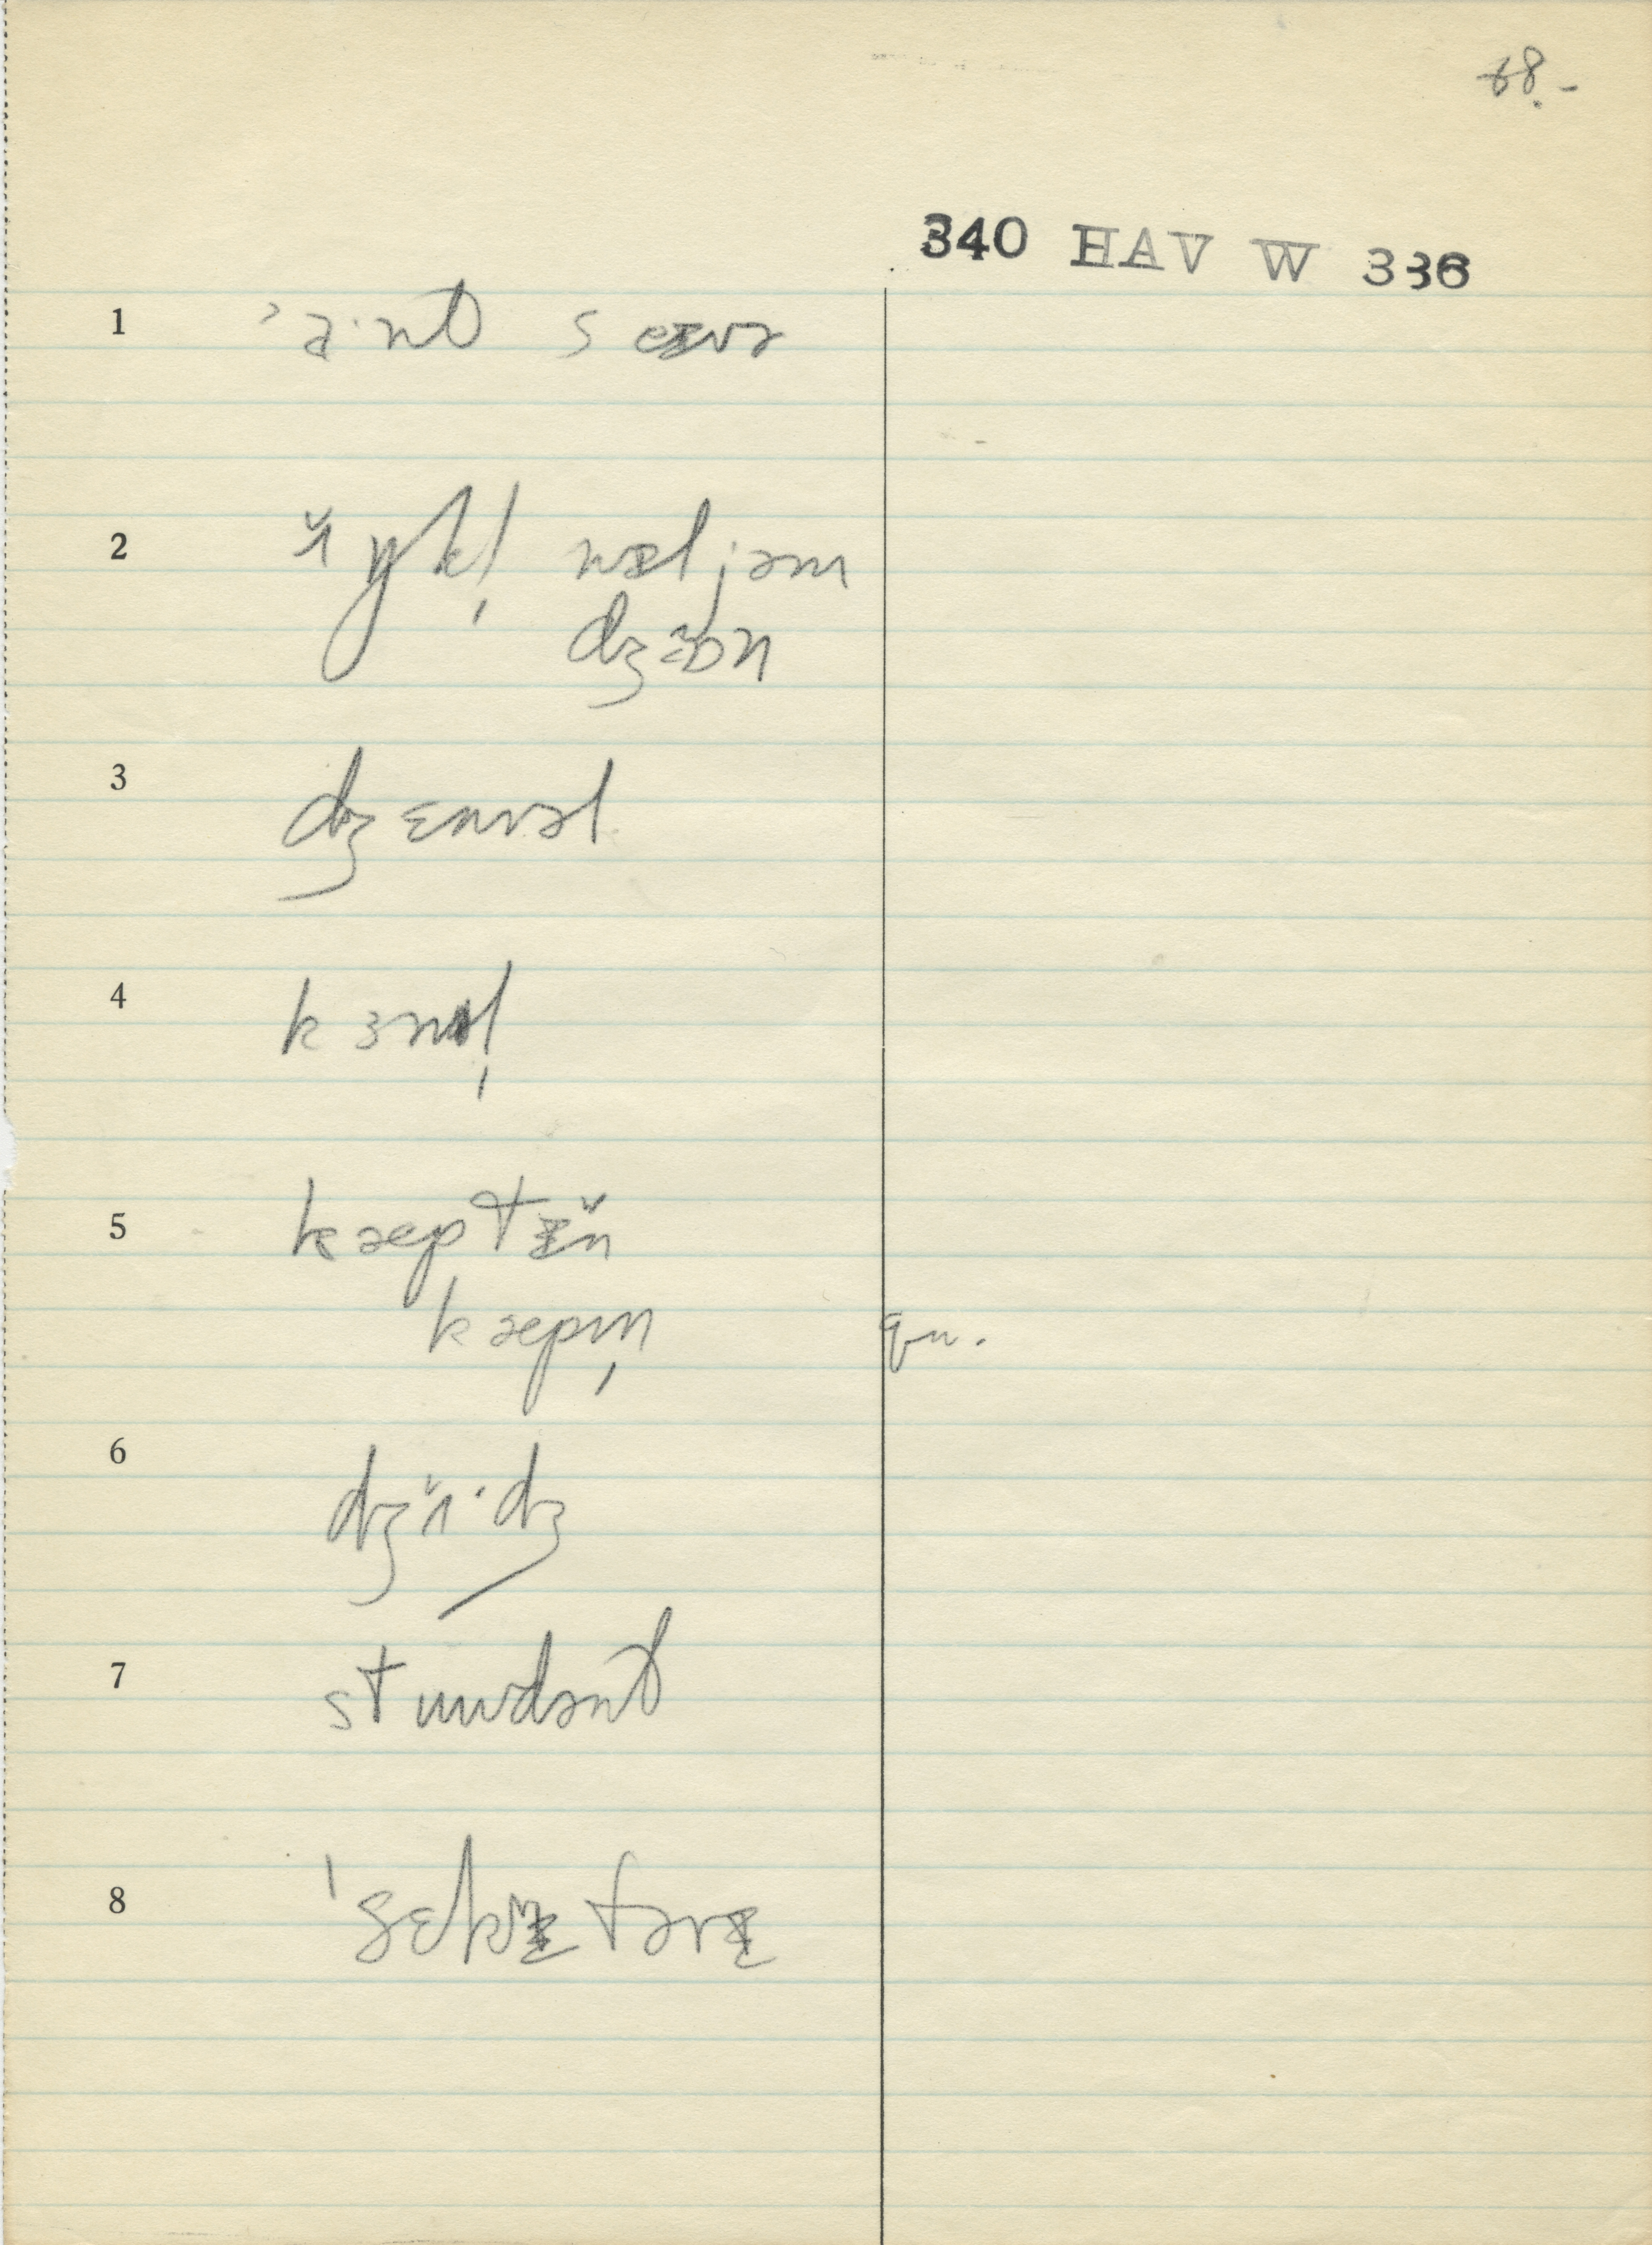 68.-
340 HAV W 336
1 ʼa·nt sɛɪrə
2 ʌ̌ŋkl̩ wɪljəm
dʒɒn
3 dʒɛnrəl
4 kɜnl̩
5 kæptɪ̌n
kæpm̩ qu.
6 dʒʌ̌·dʒ
7 stuudənt
8 ˈsɛkrɪtɛrɪ